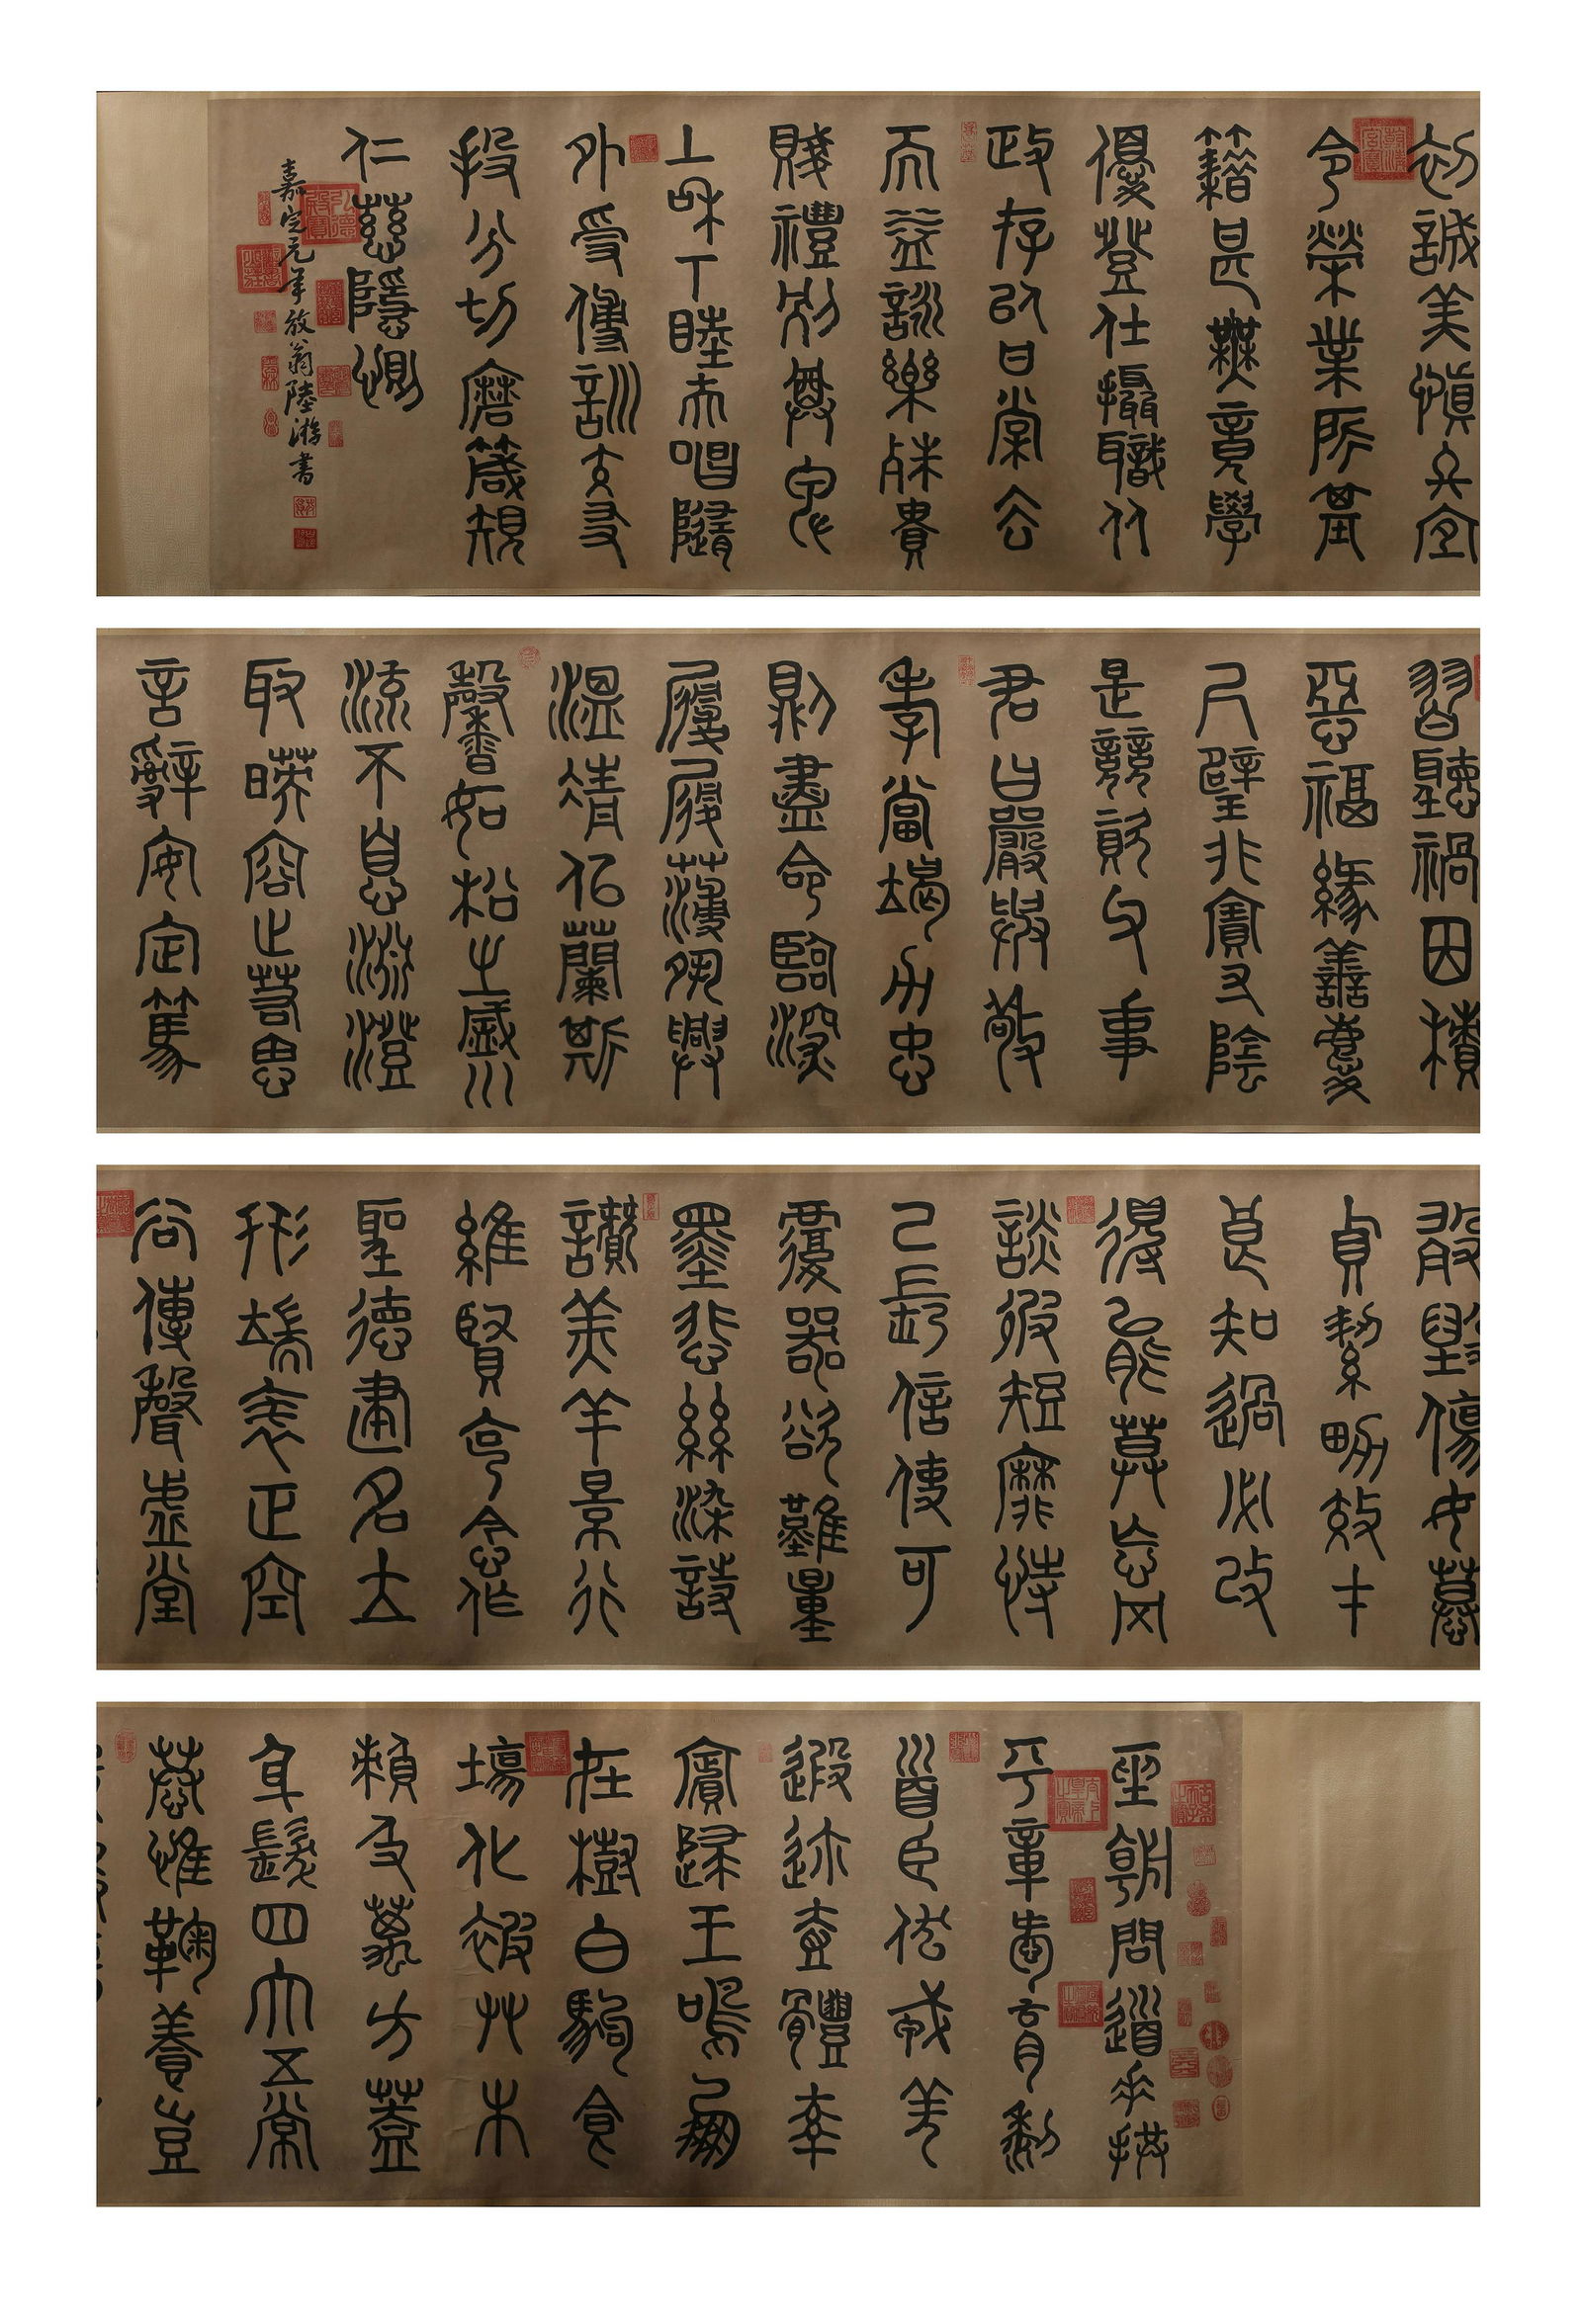 坐朝問道垂拱
平章愛育黎
首臣伏戎羌
遐迩壹體率
賓歸王鳴鳳
在樹白駒食
場化被草木
賴及萬方蓋
身髮四大五常
恭惟鞠養豈
敢毀傷女慕
貞絜男效才
良知過必改
得能莫忘罔
談彼短靡恃
己長信使可
覆器欲難量
墨悲絲染詩
讚羔羊景行
維賢克念作
聖德建名立
形端表正空
谷傳聲虛堂
習聽禍因積
惡福緣善慶
尺璧非寶寸陰
是競資父事
君曰嚴與敬
孝當竭力忠
則盡命臨深
履履薄夙興
溫凊似蘭斯
馨如松之盛川
流不息淵澄
取映容止若思
言辭安定篤
初誠美慎終宜
令榮業所基
籍甚無竟學
優登仕攝職从
政存以甘棠去
而益詠樂殊貴
賤禮別尊卑
上和下睦夫唱隨
外受傅訓交友
投分切磨箴規
仁慈隱惻
嘉定元年放翁陸游書